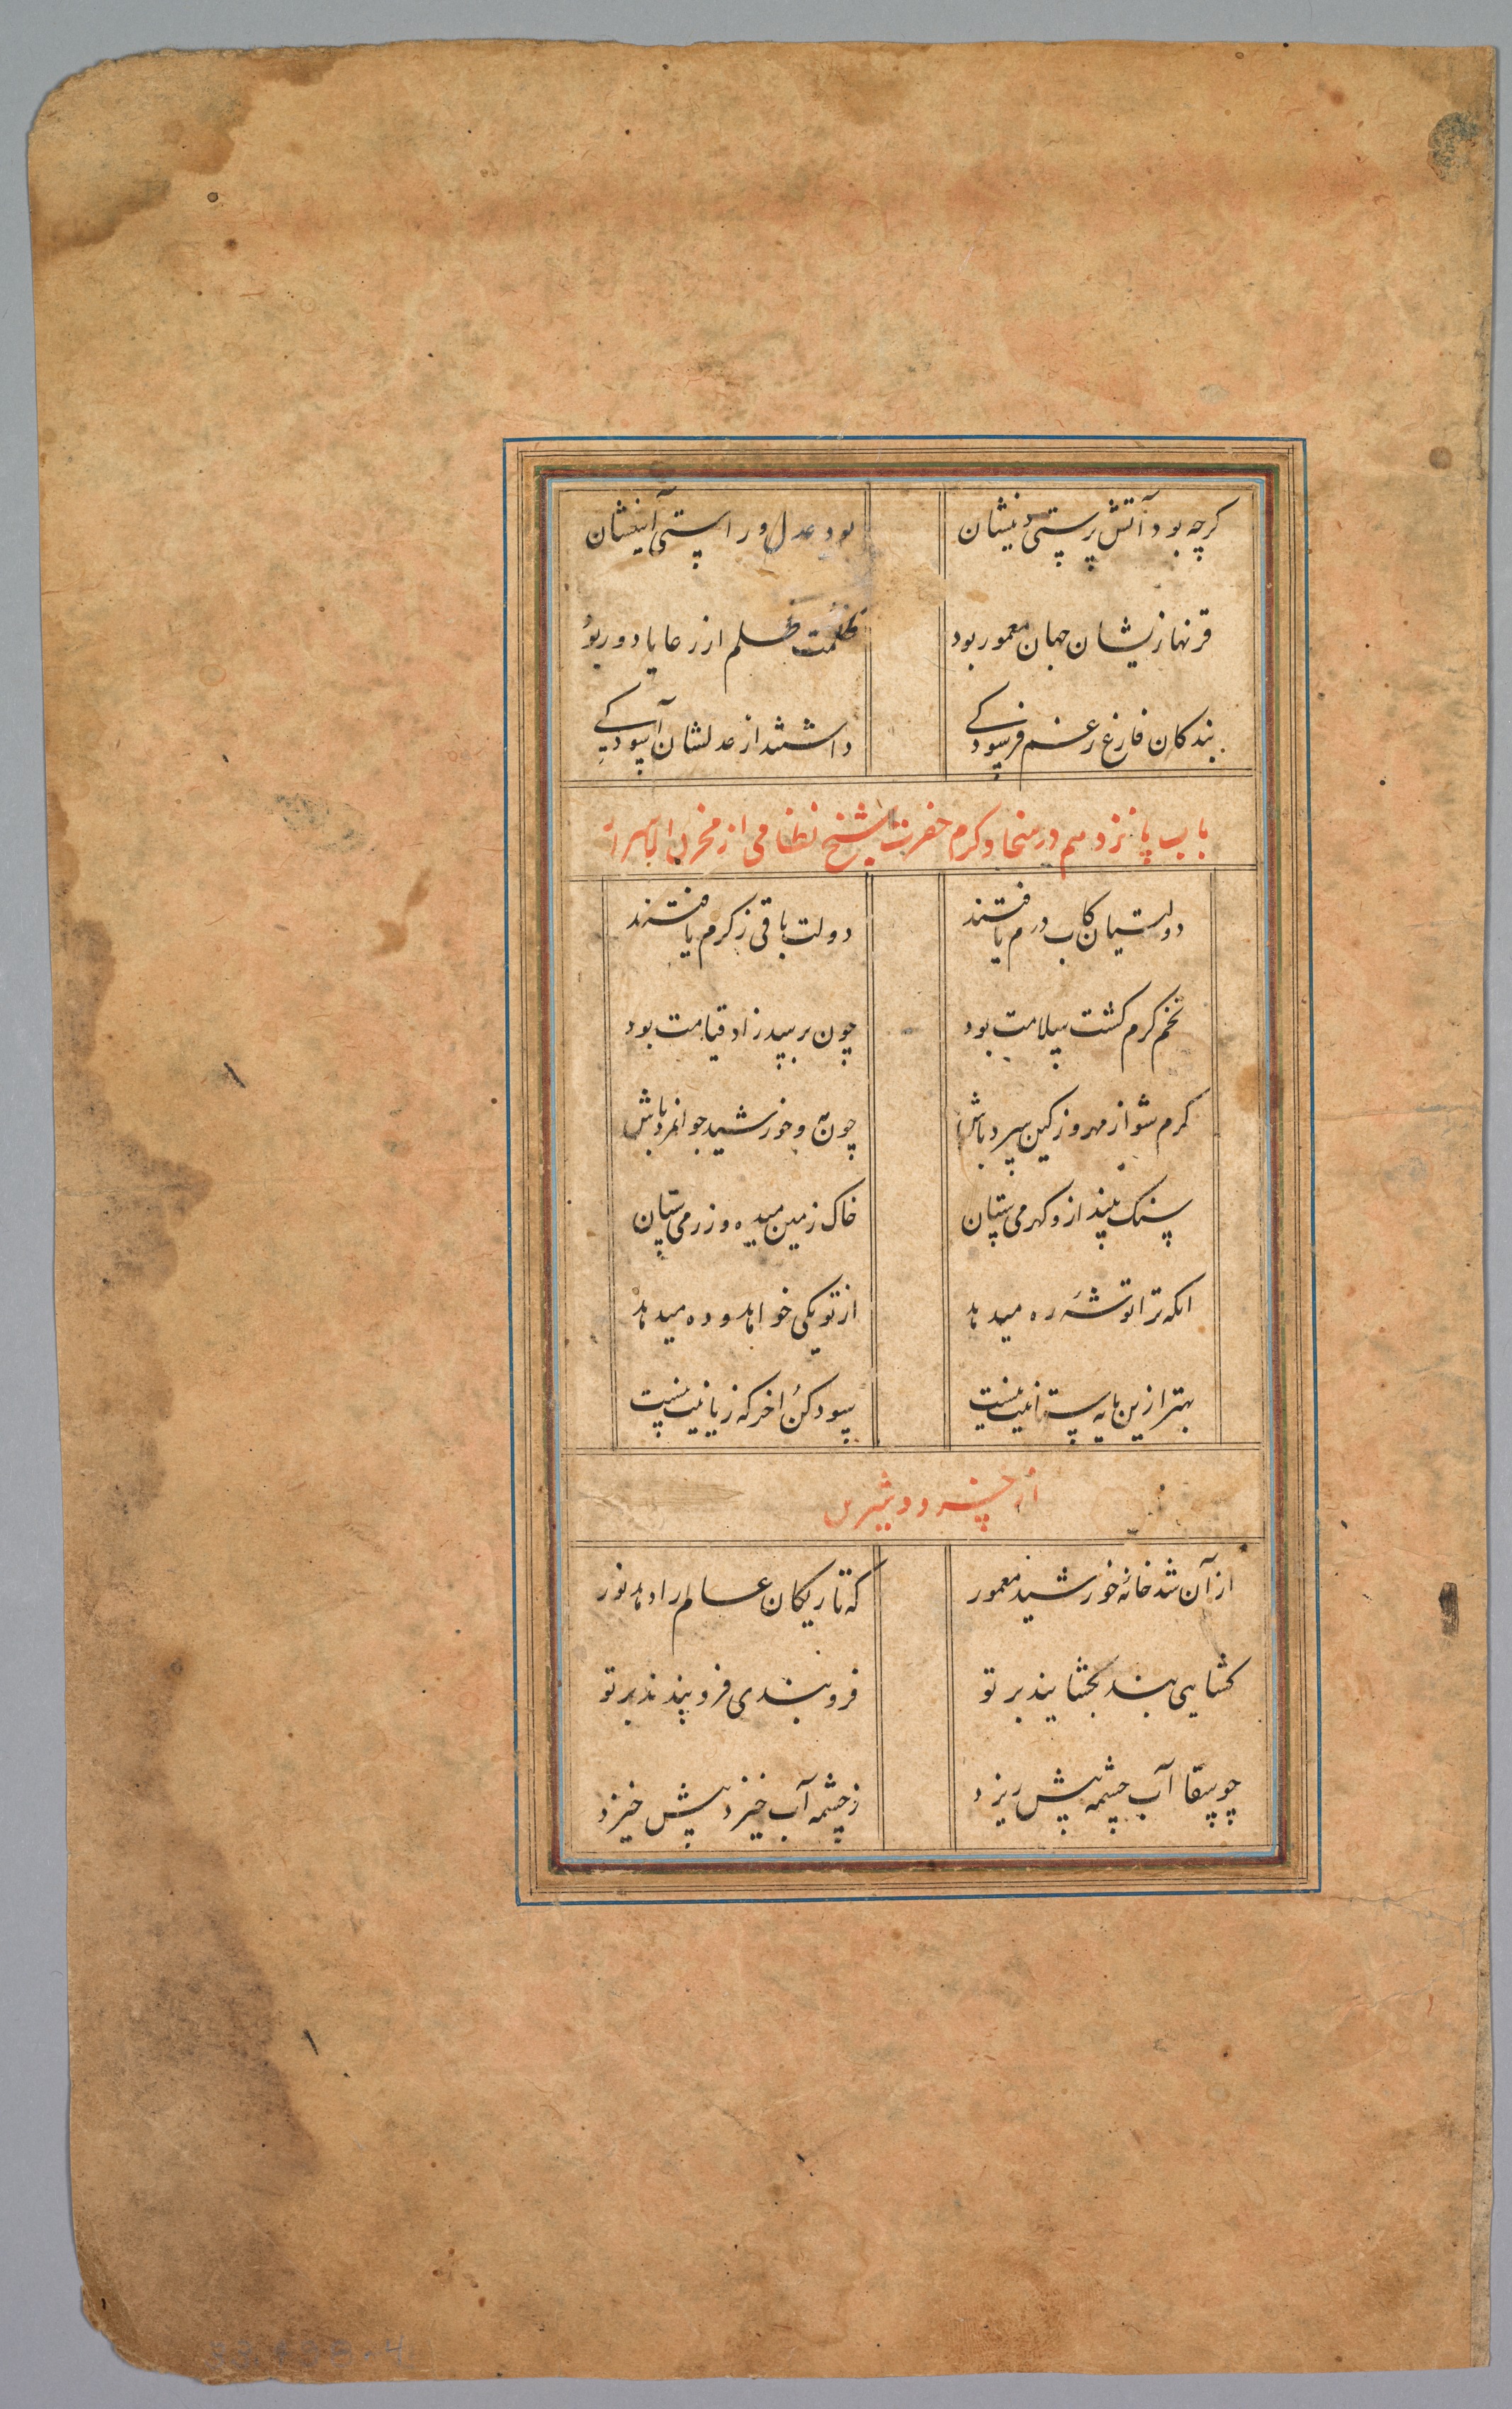 کرچه بود آتش پرستی دنیشان بود عدل و راستی آینشان
قرنها زیشان جهان معمور بود ظلمت ظلم از رعایا دور بود
بندکان فارغ زغم فرسودکی داشتند از عدلشان آسودکی
باب پانزدهم در سخا و کرم حضرت شیخ نظامی از مخزن الاسرار
دولتیان کاب درم یافتند دولت باقی ز کرم یافتند
تخم کرم کشت سلامت بود چون برسد زاد قیامت بود
کرم شو از مهر و زکین سرد باش چون مه و خورشید جوانمرد باش
سنک بینداز و کهر می ستان خاک زمین میده و زر می ستان
انکه ترا توشهٔ ره میدهد از تو یکی خواهد و ده میدهد
بهتر ازین مایه ستانیت نیست سود کن اخر که زیانیت نیست
از خسرو و شیرین
از آن شد خانهٔ خورشید معمور که تاریکان عالم را دهد نور
کشایی بند بکشایند بر تو فرو بندی فرو بندند بر تو
چو سقا آب چشمه پیش ریزد ز چشمه آب خیزد پیش خیزد